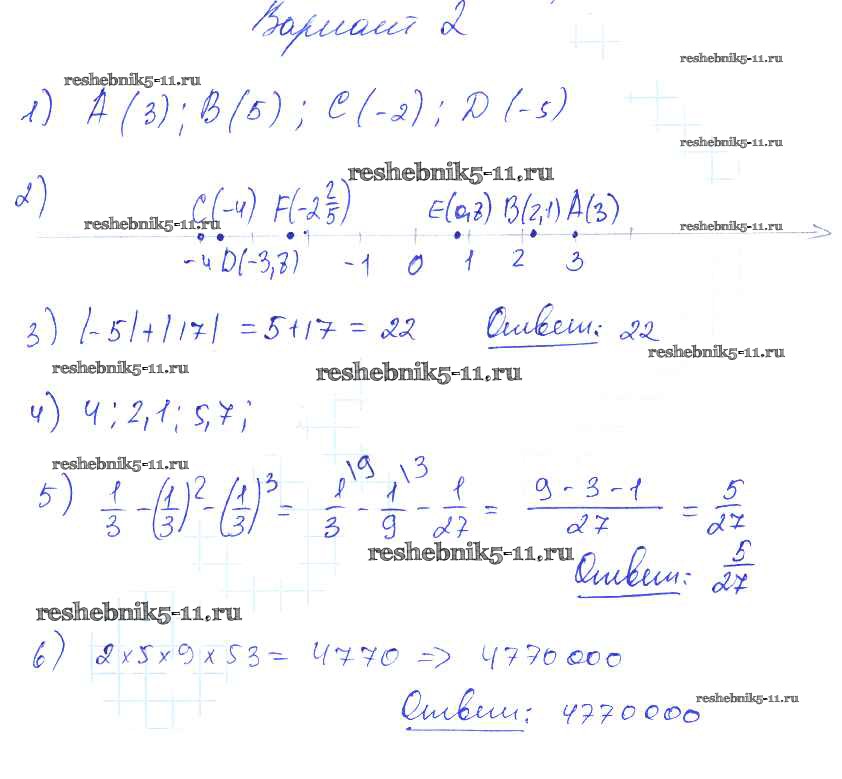 Вариант 2
reshebnik5-11.ru
reshebnik5-11.ru
1) A (3); B (5); C (-2); D (-5)
reshebnik5-11.ru
reshebnik5-11.ru
2) C(-4) F(-2 2/5) E(0,8) B(2,1) A(3)
reshebnik5-11.ru
reshebnik5-11.ru
-4 D(-3,8) -1 0 1 2 3
3) |-5|+|17| = 5+17 = 22 Ответ: 22
reshebnik5-11.ru
reshebnik5-11.ru
reshebnik5-11.ru
4) 4; 2,1; 5,7;
reshebnik5-11.ru
5) 1/3 - (1/3)² - (1/3)³ = 1/3 \9 - 1/9 \3 - 1/27 = 9-3-1/27 = 5/27
reshebnik5-11.ru
Ответ: 5/27
reshebnik5-11.ru
6) 2×5×9×53 = 4770 => 4770000
reshebnik5-11.ru
Ответ: 4770000